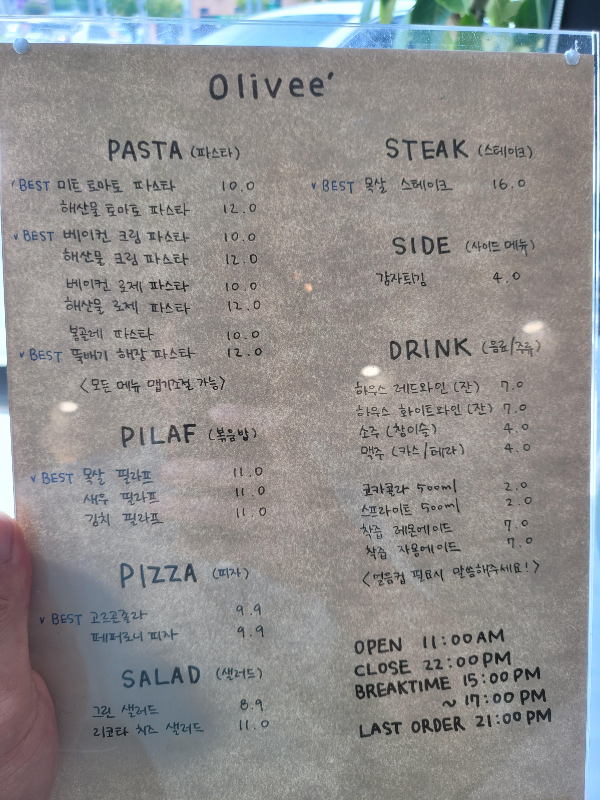 Olivee'
PASTA (파스타)
BEST 미트 토마토 파스타 10.0
해산물 토마토 파스타 12.0
BEST 베이컨 크림 파스타 10.0
해산물 크림 파스타 12.0
베이컨 로제 파스타 10.0
해산물 로제 파스타 12.0
봉골레 파스타 10.0
BEST 뚝배기 해장 파스타 12.0
<모든 메뉴 맵기조절 가능>
PILAF (볶음밥)
BEST 목살 필라프 11.0
새우 필라프 11.0
김치 필라프 11.0
PIZZA (피자)
BEST 고르곤졸라 9.9
페퍼로니 피자 9.9
SALAD (샐러드)
그린 샐러드 8.9
리코타 치즈 샐러드 11.0
STEAK (스테이크)
BEST 목살 스테이크 16.0
SIDE (사이드 메뉴)
감자튀김 4.0
DRINK (음료/주류)
하우스 레드와인 (잔) 7.0
하우스 화이트와인 (잔) 7.0
소주 (참이슬) 4.0
맥주 (카스/테라) 4.0
코카콜라 500ml 2.0
스프라이트 500ml 2.0
착즙 레몬에이드 7.0
착즙 자몽에이드 7.0
<얼음컵 필요시 말씀해주세요!>
OPEN 11:00 AM
CLOSE 22:00 PM
BREAKTIME 15:00 PM
~ 17:00 PM
LAST ORDER 21:00 PM